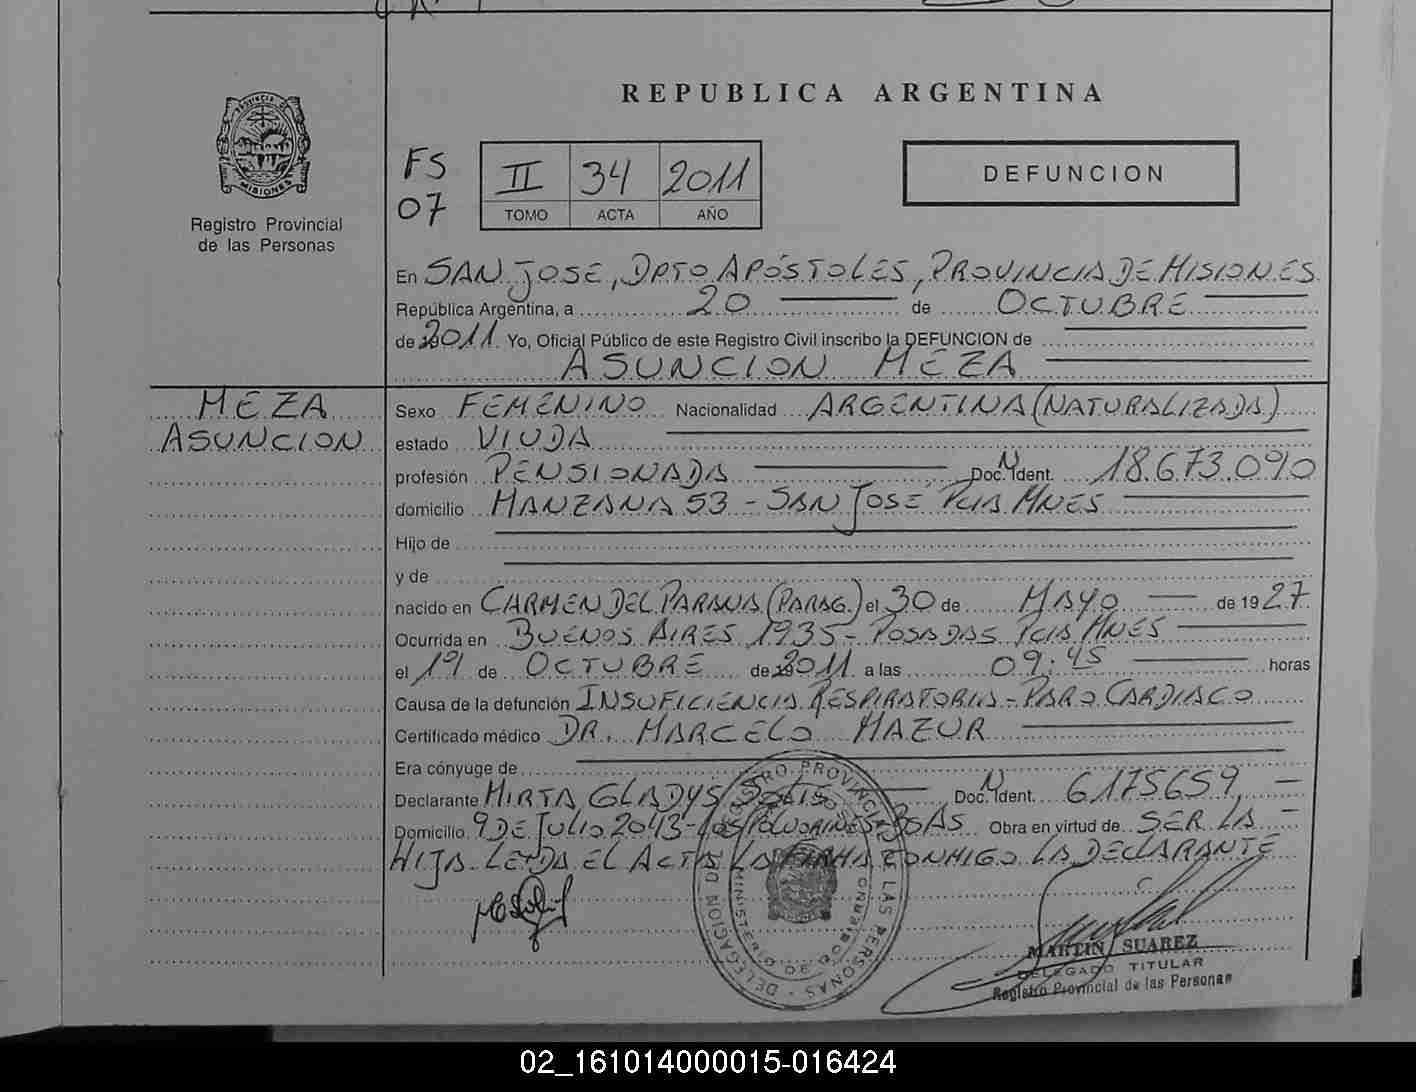 REPUBLICA ARGENTINA
PROVINCIA DE
MISIONES
Registro Provincial
de las Personas
FS
07
II 34 2011
TOMO ACTA AÑO
DEFUNCION
En SAN JOSE, DPTO APÓSTOLES, PROVINCIA DE MISIONES
República Argentina, a 20 de OCTUBRE
de 2011 Yo, Oficial Público de este Registro Civil inscribo la DEFUNCION de
ASUNCION MEZA
MEZA
ASUNCION
Sexo FEMENINO Nacionalidad ARGENTINA (NATURALIZADA)
estado VIUDA
profesión PENSIONADA Doc. N Ident. 18.673.090
domicilio MANZANA 53 - SAN JOSE PCIA MNES
Hijo de
y de
nacido en CARMEN DEL PARANA (PARAG.) el 30 de MAYO de 1927
Ocurrida en BUENOS AIRES 1935 - POSADAS PCIA MNES
el 19 de OCTUBRE de 2011 a las 09:45 horas
Causa de la defunción INSUFICIENCIA RESPIRATORIA - PARO CARDIACO
Certificado médico DR. MARCELO MAZUR
Era cónyuge de
Declarante MIRTA GLADYS SOLIS Doc. N Ident. 6175659
Domicilio 9 DE JULIO 2043 - LOS POLVORINES - BSAS Obra en virtud de SER LA
HIJA LEIDA EL ACTA LA FIRMA CONMIGO LA DECLARANTE
REGISTRO PROVINCIAL DE LAS PERSONAS - DELEGACION
MINISTERIO DE GOBIERNO
MARTIN SUAREZ
DELEGADO TITULAR
Registro Provincial de las Personas
02_161014000015-016424